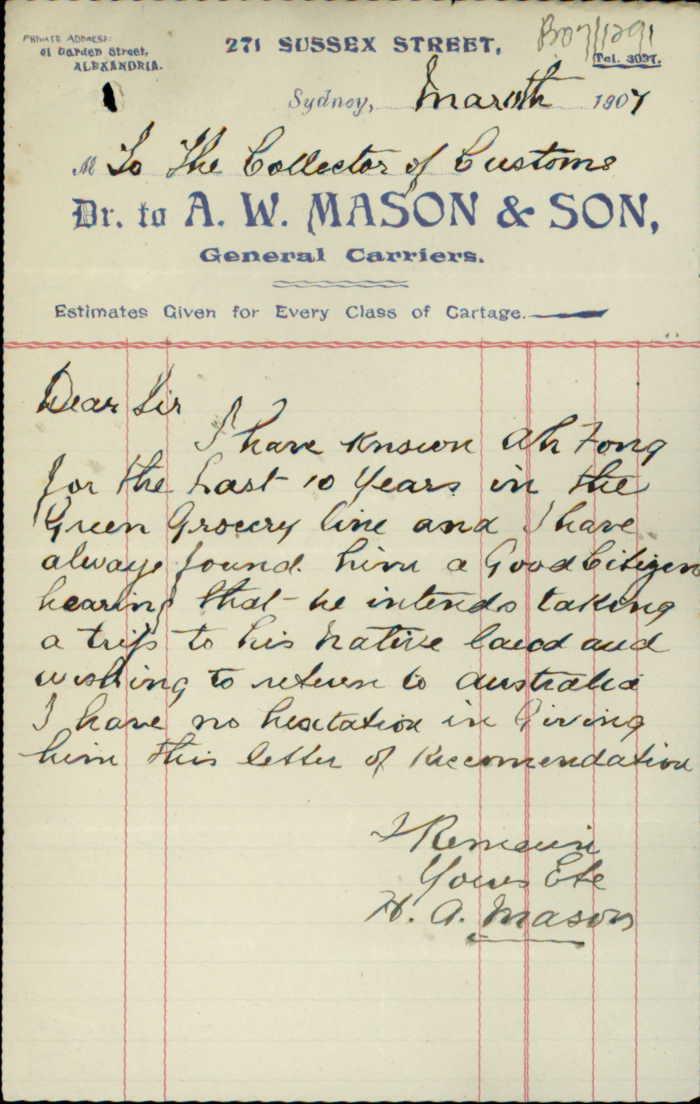 PRIVATE ADDRESS:
61 Garden Street,
ALEXANDRIA.
271 SUSSEX STREET,
B07/1291
Tel. 3097.
Sydney, Mar 11th 1907
M To The Collector of Customs
Dr. to A. W. MASON & SON,
General Carriers.
Estimates Given for Every Class of Cartage.
Dear Sir
I have Known Ah Fong
for the Last 10 Years in the
Green Grocery line and I have
always found him a Good Citizen
hearing that he intends taking
a trip to his Native land and
wishing to return to Australia
I have no hesitation in Giving
him this letter of Reccomendation
I Remain
Yours Etc
H. A. Mason